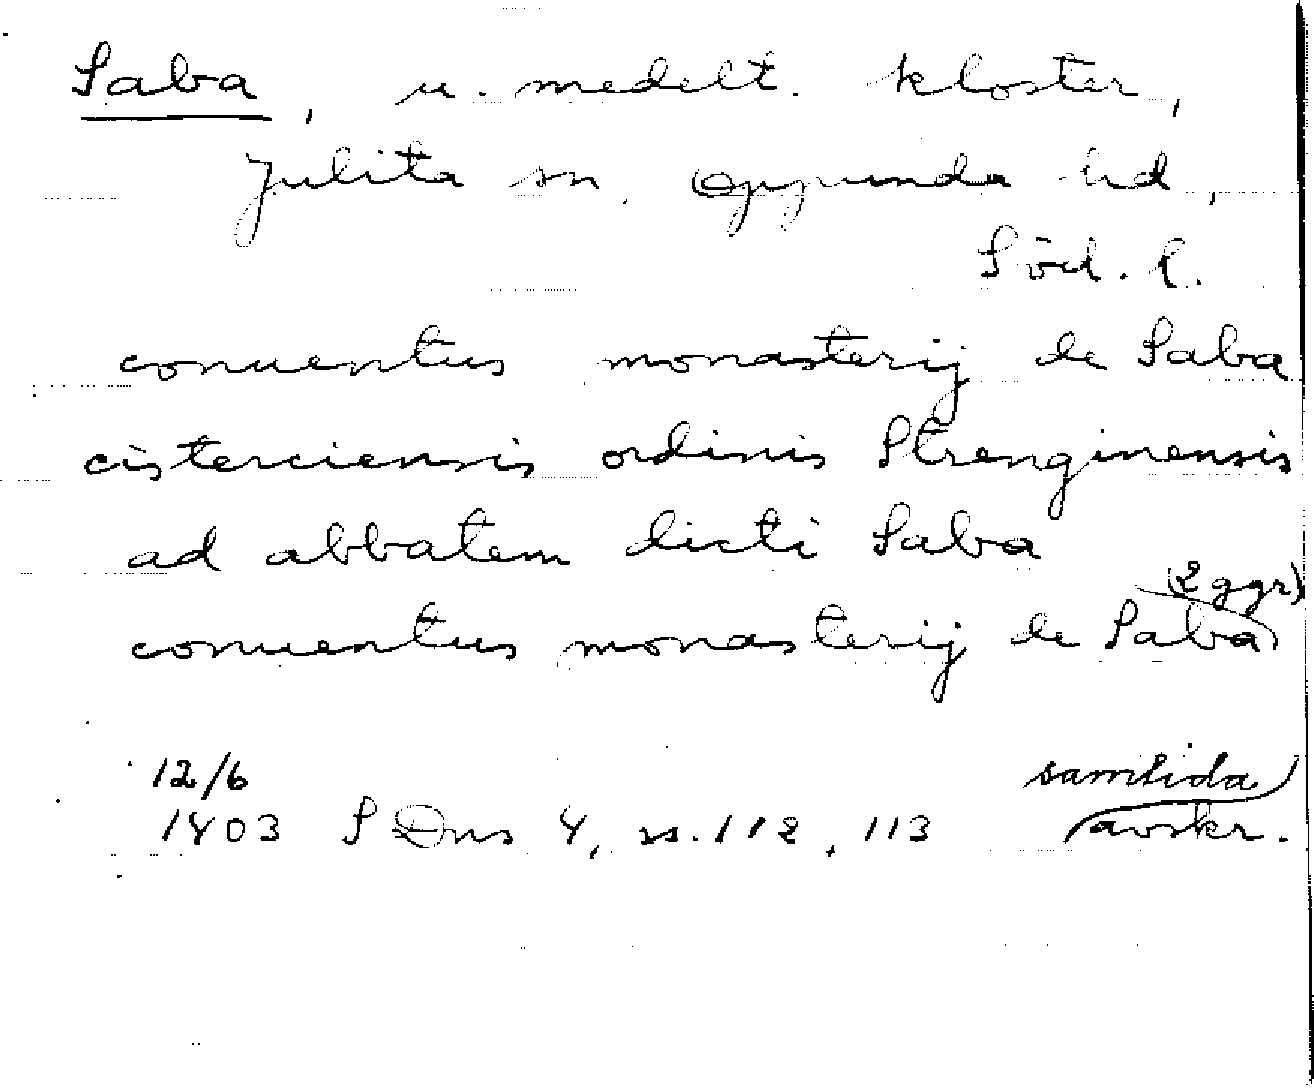 Saba, u. medelt. kloster,
Julita sn. Oppunda hd,
Söd. l.
conuentus monasterij de Saba
cisterciensis ordinis Strenginensis
ad abbatem dicti Saba
(2 ggr)
conuentus monasterij de Saba
12/6 samtida
1403 SDns 4, ss. 112, 113 avskr.